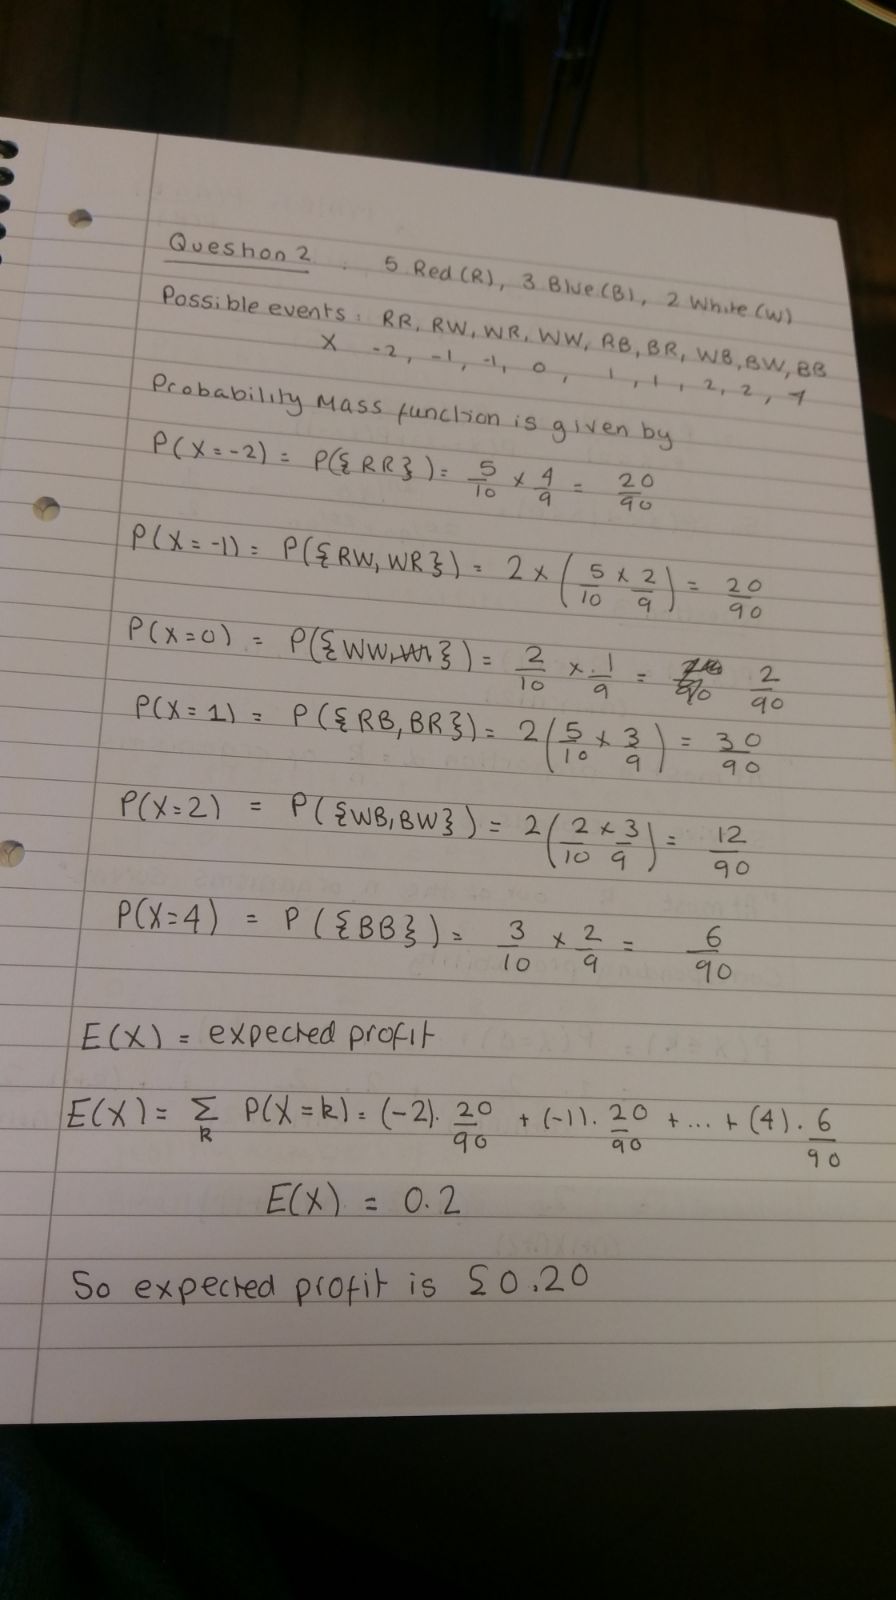 Question 2 . 5 Red (R), 3 Blue (B), 2 White (W)
Possible events: RR, RW, WR, WW, RB, BR, WB, BW, BB
X -2, -1, -1, 0, 1, 1, 2, 2, 4
Probability Mass function is given by
P(X=-2) = P({RR}) = 5/10 × 4/9 = 20/90
P(X=-1) = P({RW, WR}) = 2 × (5/10 × 2/9) = 20/90
P(X=0) = P({WW}) = 2/10 × 1/9 = 2/90
P(X=1) = P({RB, BR}) = 2(5/10 × 3/9) = 30/90
P(X=2) = P({WB, BW}) = 2(2/10 × 3/9) = 12/90
P(X=4) = P({BB}) = 3/10 × 2/9 = 6/90
E(X) = expected profit
E(X) = Σ_k P(X=k) = (-2). 20/90 + (-1). 20/90 + ... + (4) . 6/90
E(X) = 0.2
So expected profit is £0.20